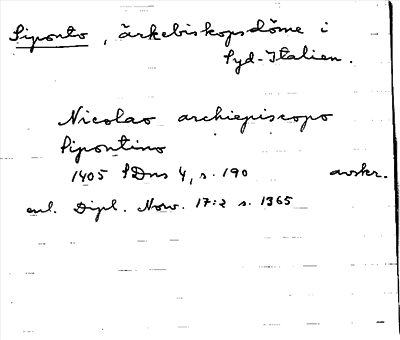 Siponto, ärkebiskopsdöme i
Syd-Italien.
Nicolao archiepiscopo
Sipontino
1405 SDns 4, s. 190 avskr.
enl. Dipl. Norv. 17:2 s. 1365